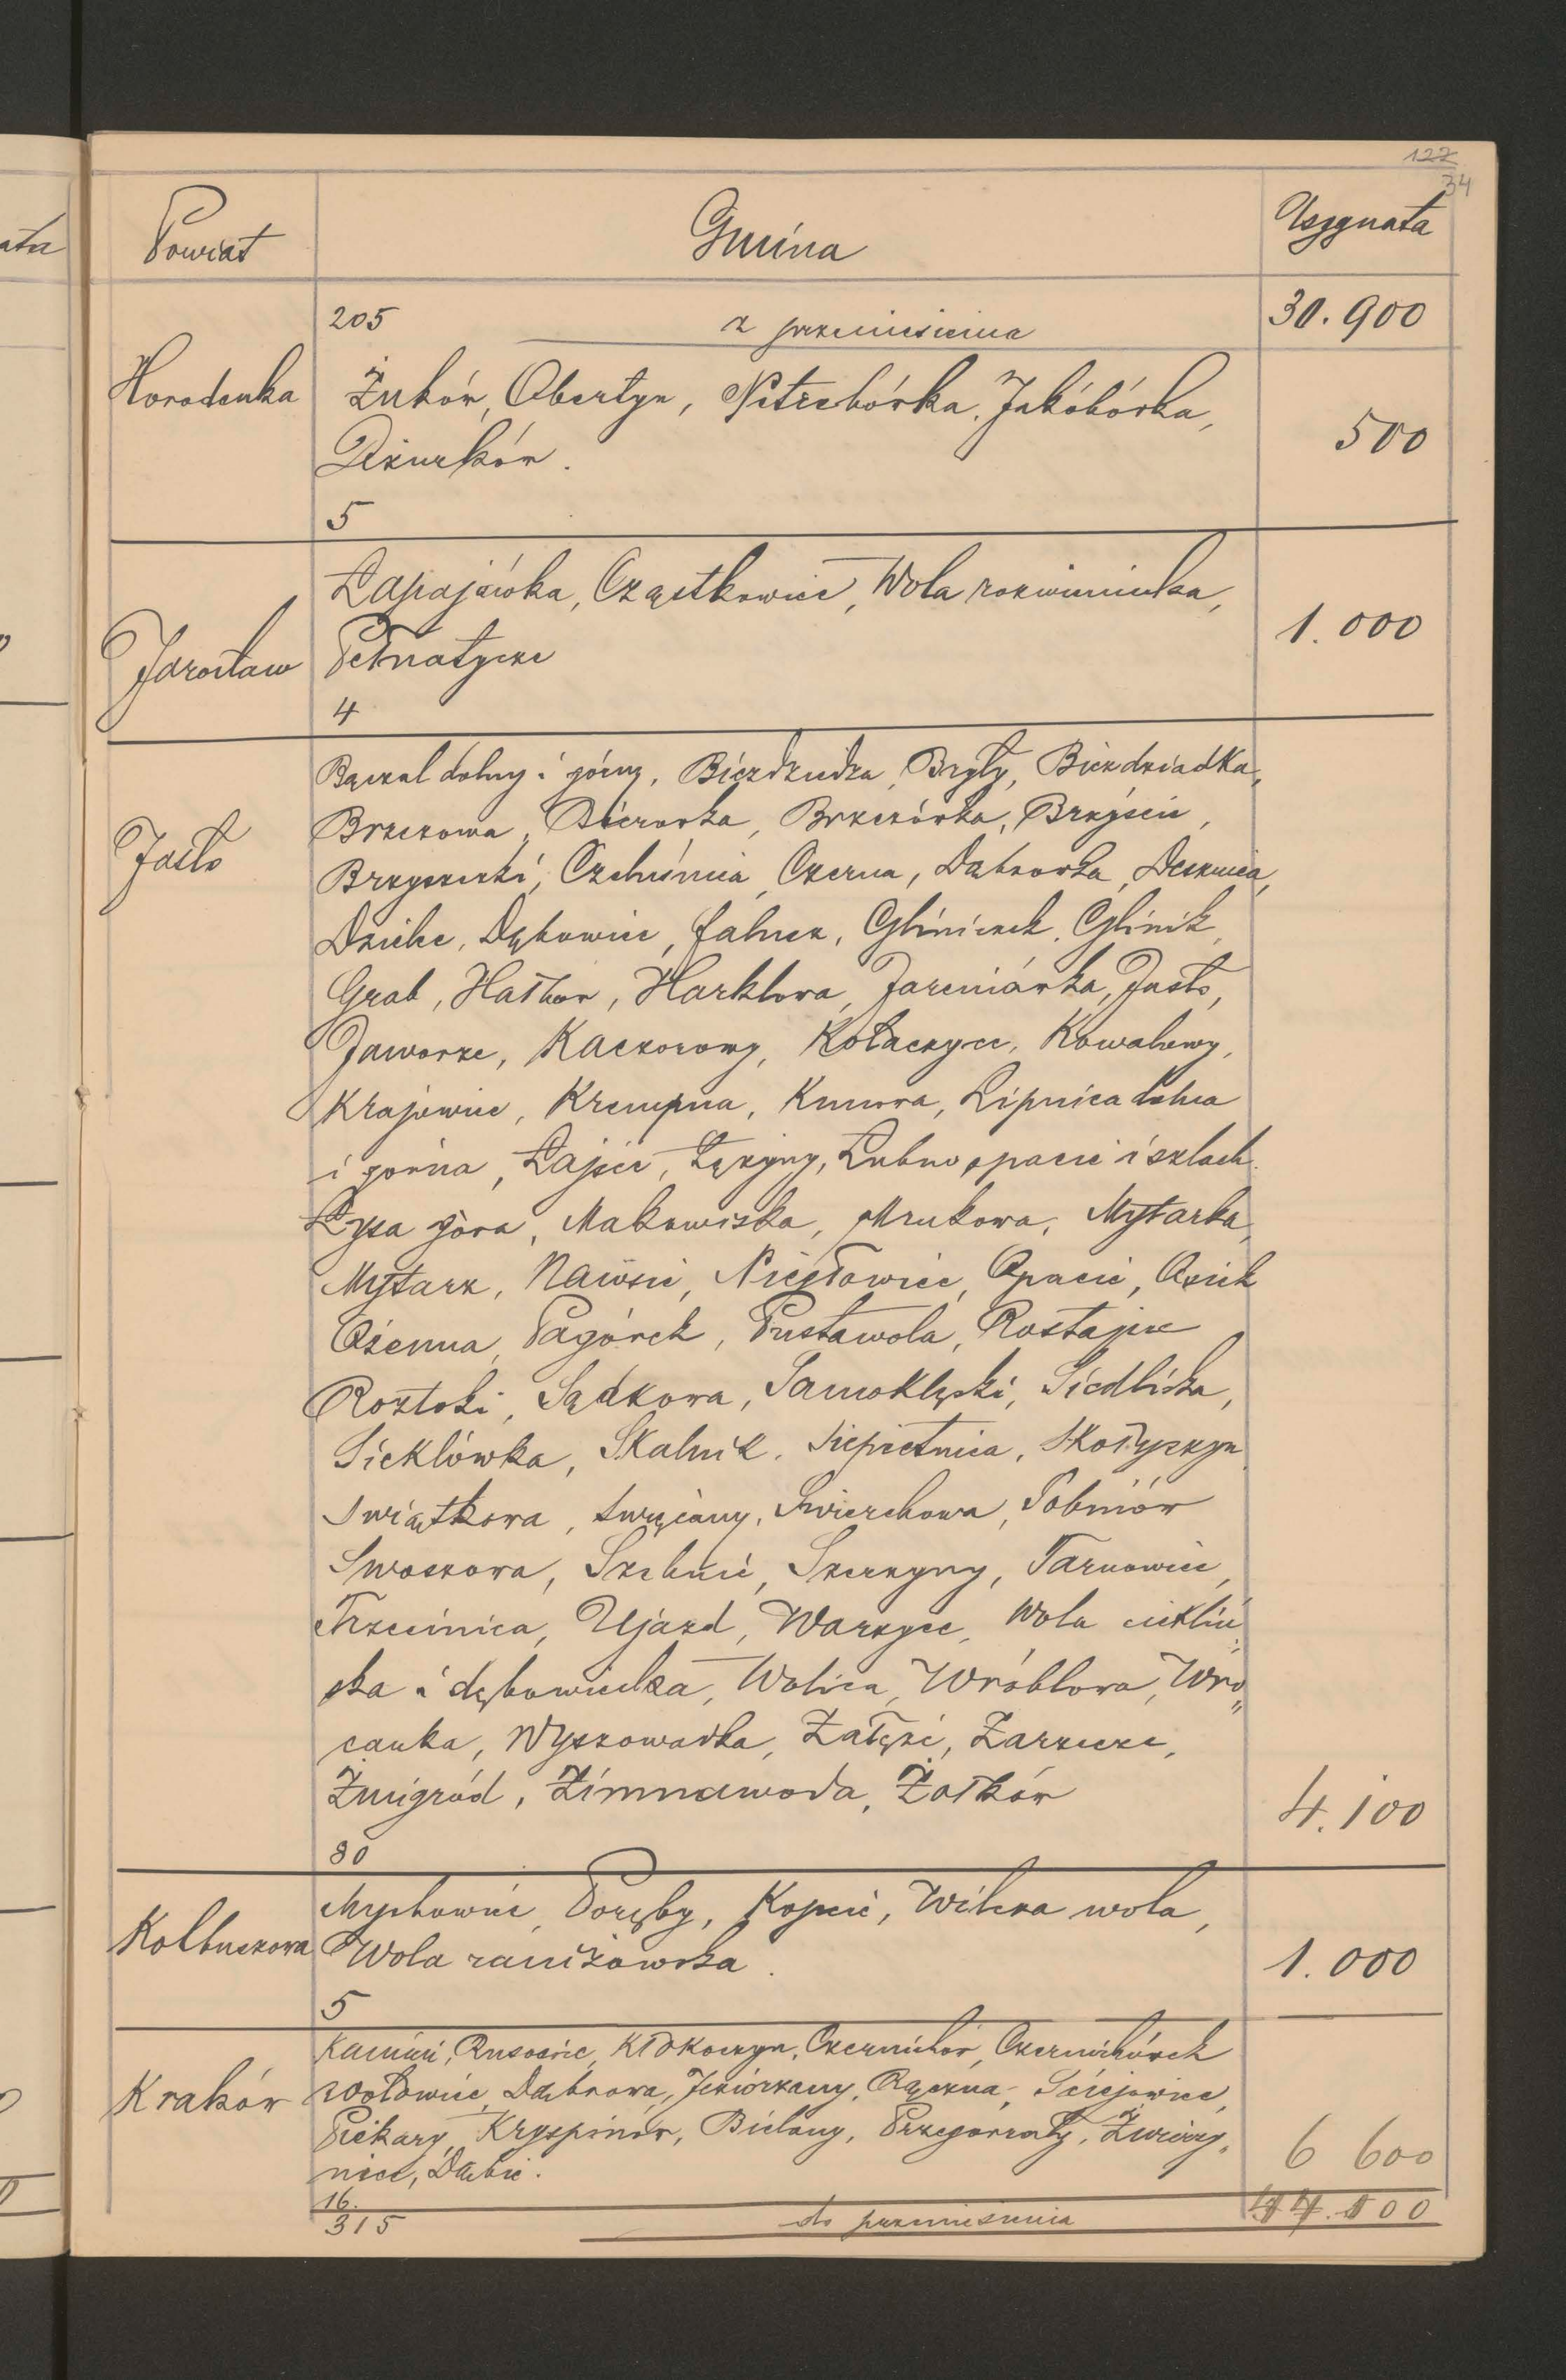 127
34
Powiat Gmina Asygnata
205 z przeniesienia 30.900
Horodenka Żuków, Obertyn, Piotrebórka, Jakóbórka,
Dżurków. 500
5
Łapajówka, Cząstkowice, Wola rozwienicka,
Jarosław Pełnatycze 1.000
4
Bączal dolny i górny, Bierdziedza, Bryły, Biezdziadka,
Jasło Brzezowa, Bierówka, Brzezówka, Brzyście,
Brzyszczki, Czeluśnia, Czerna, Dąbrówka, Desznica,
Dzielec, Dębowiec, Faliszek, Gliniczek, Glinik,
Grab, Hałbów, Harklowa, Jareniówka, Jasło,
Jaworze, Kaczorowy, Kołaczyce, Kowalowy,
Krajowice, Krempna, Kunowa, Lipnica dolna
i górna, Łajsce, Łężyny, Łubno opacie i szlach.
Łysa góra, Makowiska, Mrukowa, Mytarka,
Mytarz, Nawsie, Niegłowice, Opacie, Osiek
Ożenna, Pagórek, Pustawola, Rostajne
Roztoki, Sądkowa, Samoklęski, Siedliska,
Sieklówka, Skalnik, Siepietnica, Skołyszyn
Swiątkowa, Święcany, Swierchowa, Sobniów
Swoszowa, Szebnie, Szerzyny, Tarnowiec,
Trzcinica, Ujazd, Warzyce, Wola cieklin
ska i dębowiecka, Wolica, Wróblowa, Wro„
canka, Wyszowadka, Załęże, Zarzecze,
Żmigród, Zimnawoda, Żołków 4.100
80
Mechowiec, Poręby, Kopcie, Wilcza wola,
Kolbuszowa Wola raniżowska. 1.000
5
Kamień, Rusocice, Kłokoczyn, Czernichów, Czernichówek
Kraków Wołowice, Dąbrowa, Jeziorzany, Rączna, Ściejowice,
Piekary, Kryspinów, Bielany, Przegorzały, Zwierzy„
niec, Dąbie. 6 600
16.
315 do przeniesienia 44.100